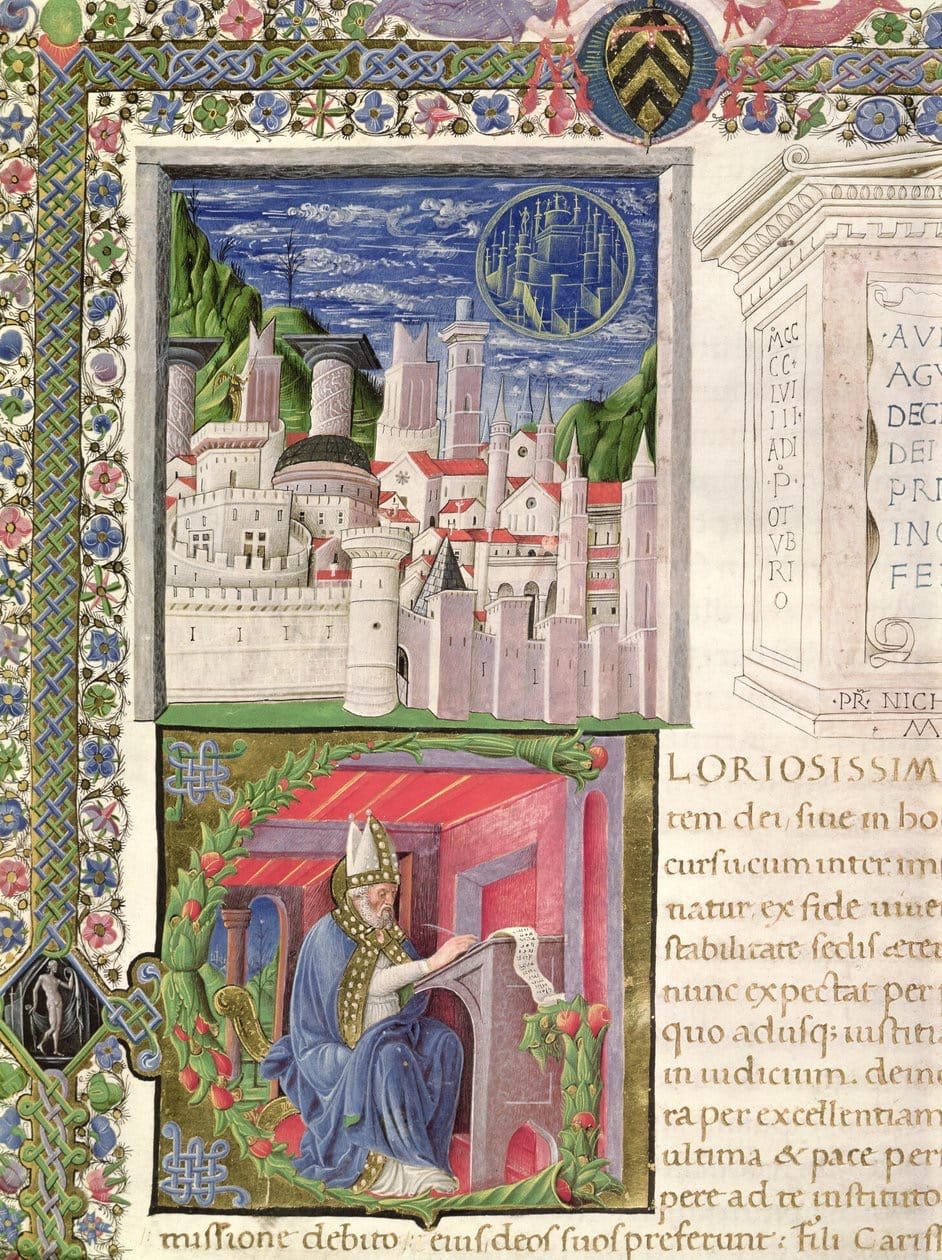 MCC
CC+
LVI
III·
ADI
·P·
OT
VB
RI
O
AGV
DEC
DEI
INC
FE
·PR̃· NICH
M
LORIOSISSIM
tem dei, siue in ho
cursu cum inter im
natur, ex fide uiue
stabilitate sedis æter
nunc expectat per
quo adusq; iustiti
in iudicium. dein
ra per excellentiam
ultima & pace per
pere ad te instituto
missione debito eius deos suos preferunt: Fili Cariss